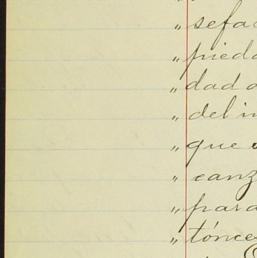 „ sefa
„ pieda
„ dad a
„ del i
„ que
„ canz
„ para
„ tónce